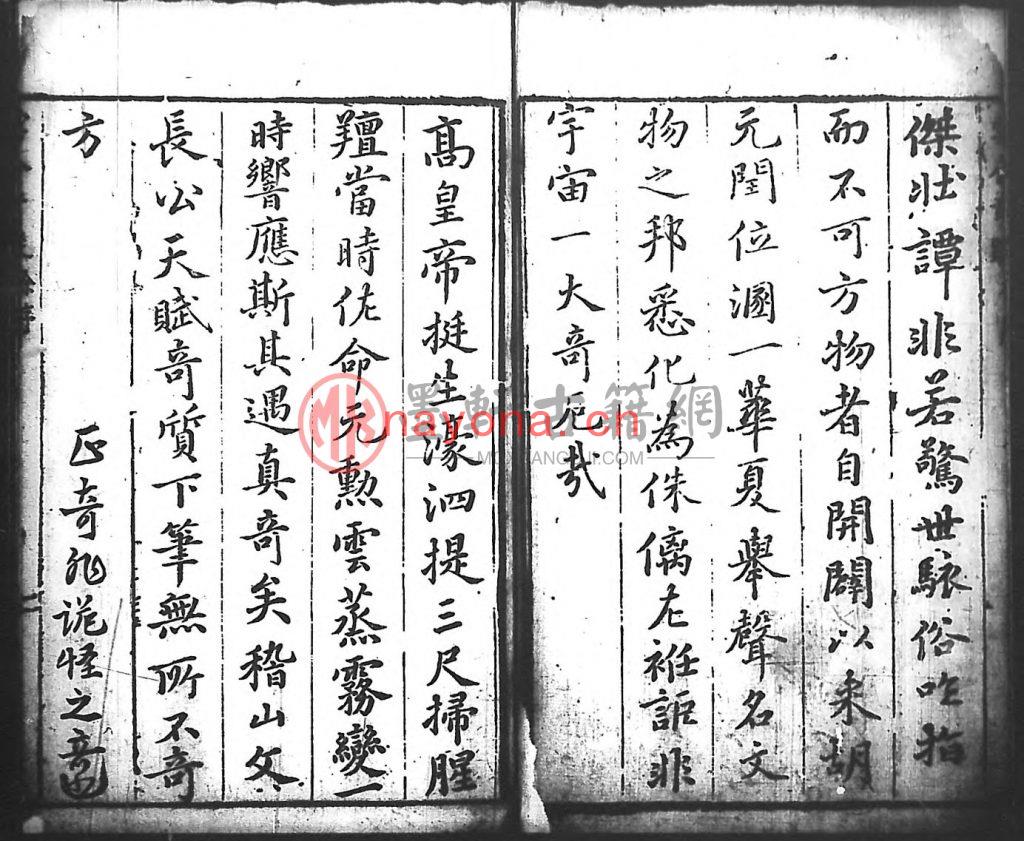 傑壯譚非若驚世駭俗咋指
而不可方物者自開闢以来胡
元閏位溷一華夏舉聲名文
物之邦悉化為侏㒧左袵詎非
宇宙一大奇厄㦲
高皇帝挺生濠泗提三尺掃腥
羶當時佐命元勲雲蒸霧變一
時響應斯其遇真奇矣稽山父
長公天賦奇質下筆無所不奇
方
正奇非詭怪之奇
墨軒古籍網
nayona.cn